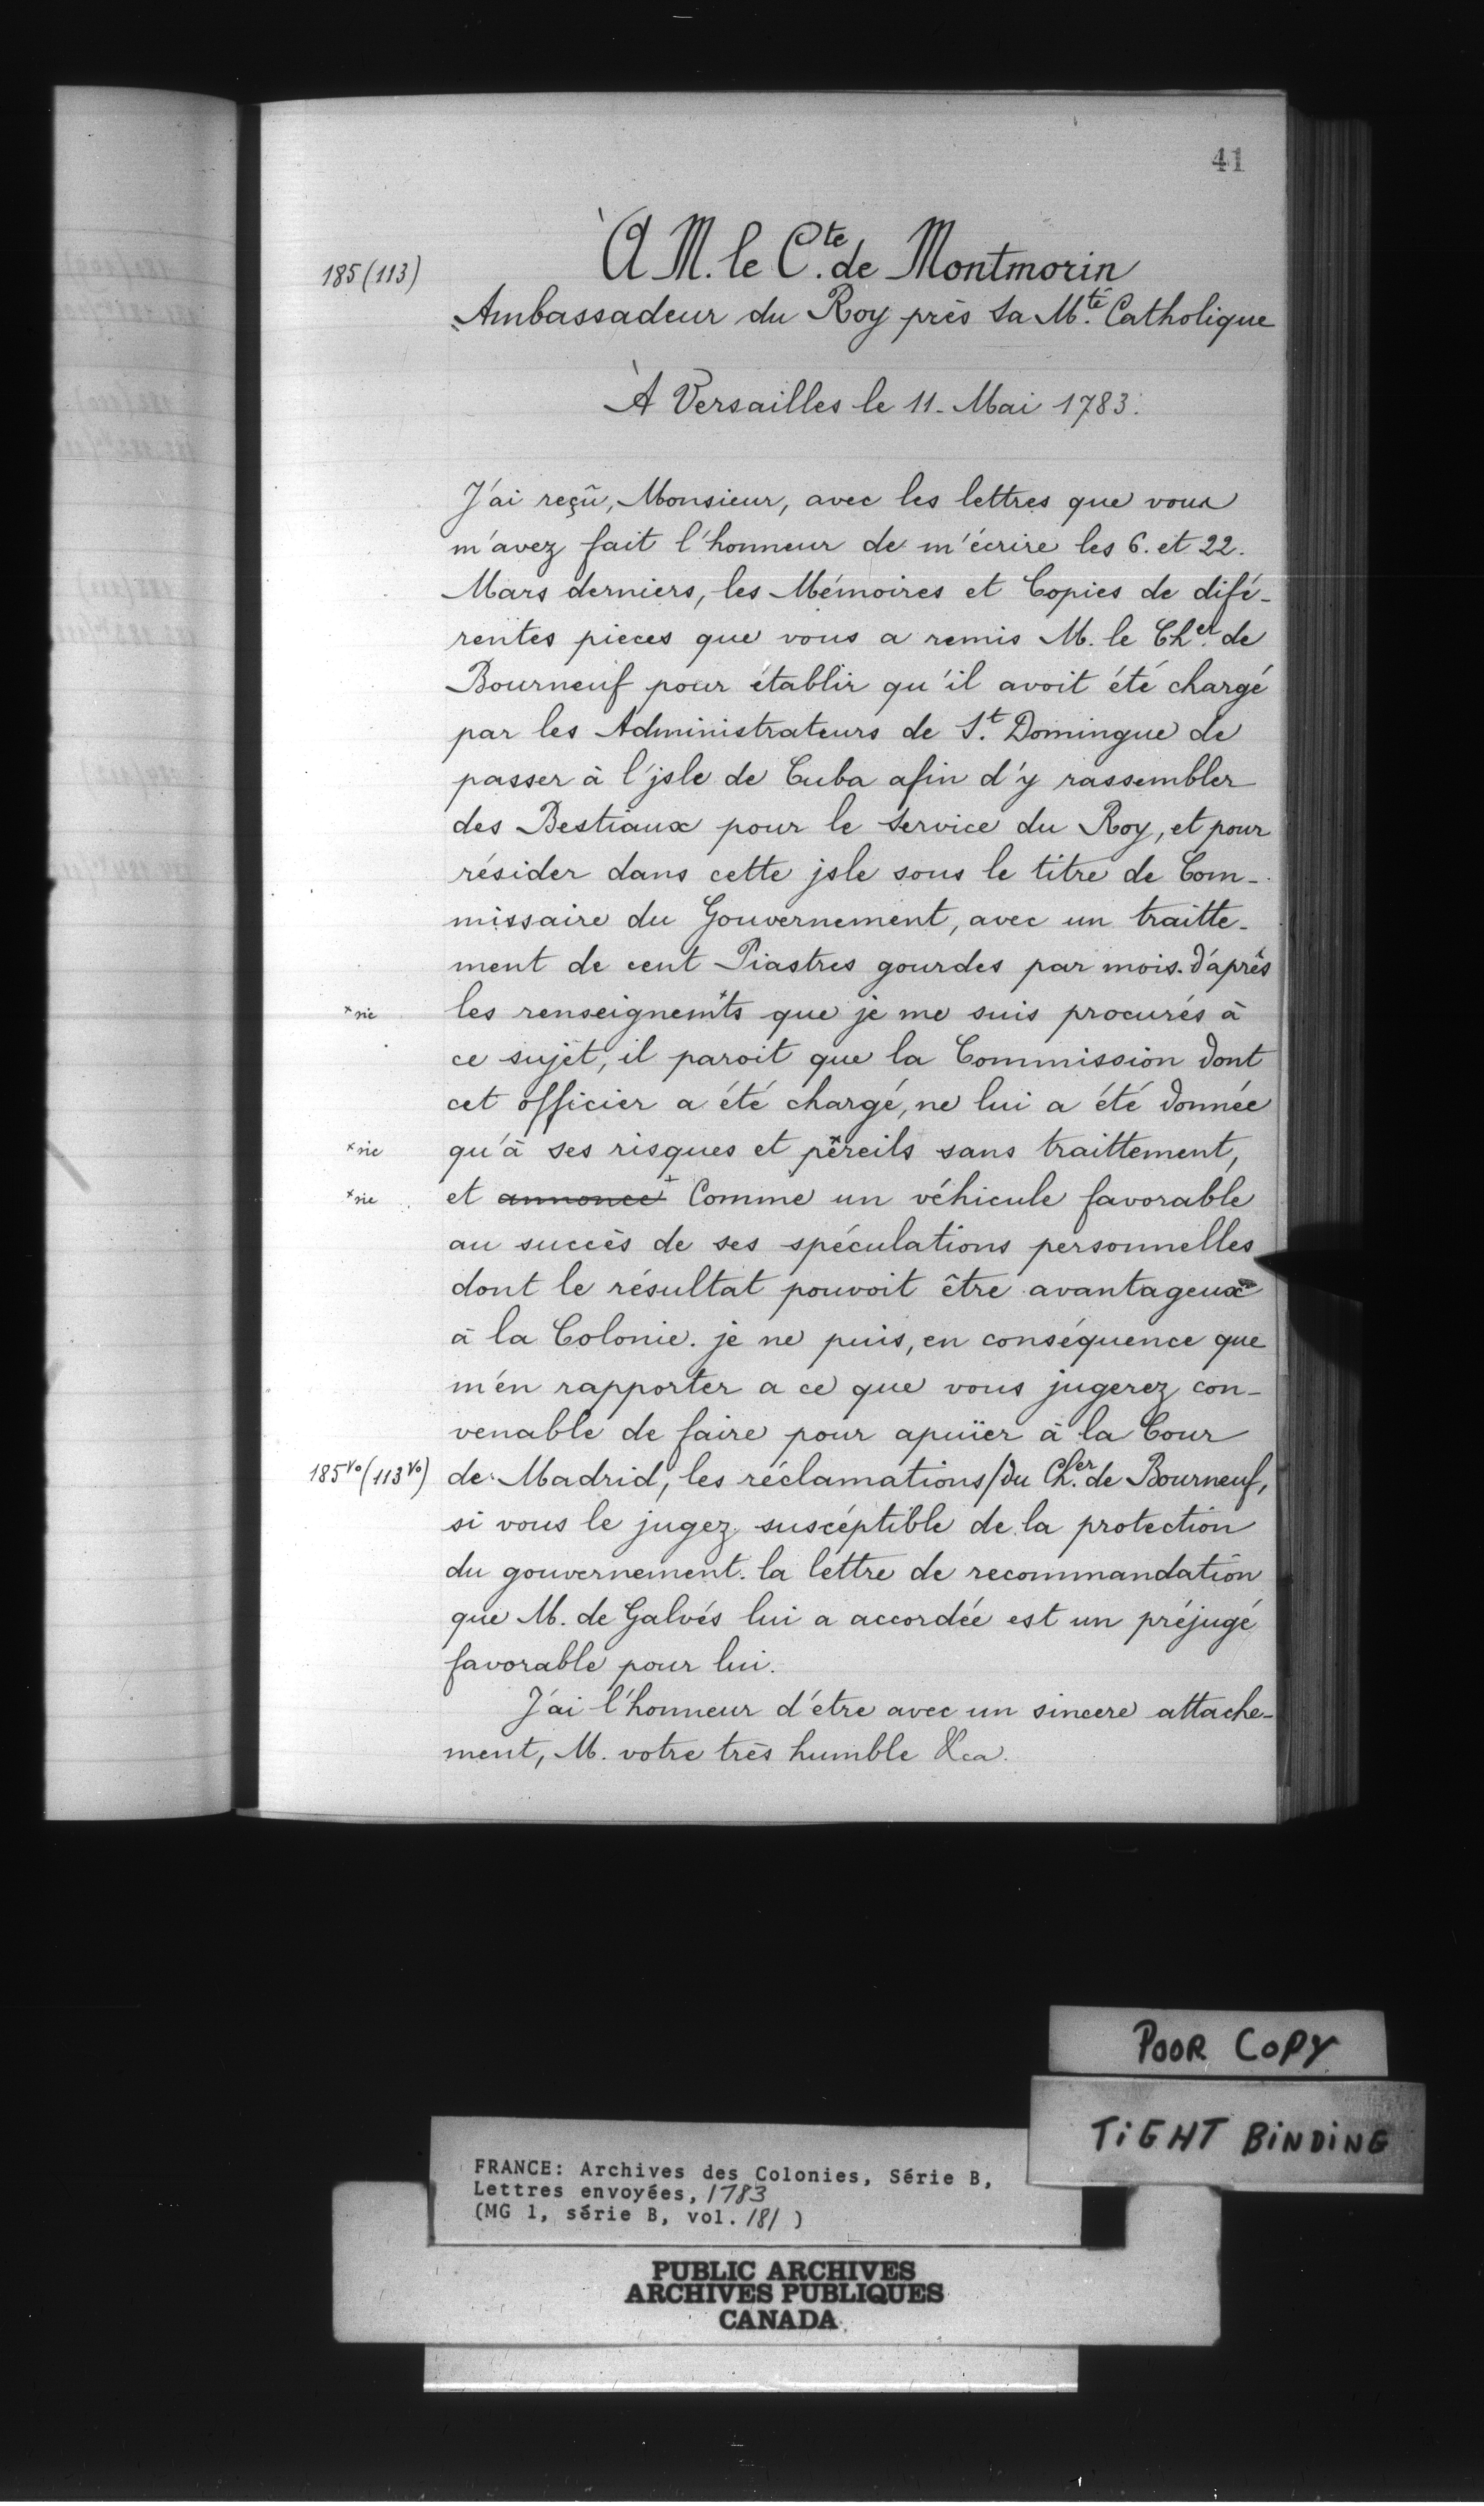 41
185 (113)
À M. le C.te de Montmorin
Ambassadeur du Roy près Sa M.té Catholique
À Versailles le 11. Mai 1783.
J'ai reçû, Monsieur, avec les lettres que vous
m'avez fait l'honneur de m'écrire les 6. et 22.
Mars derniers, les Mémoires et Copies de difé-
rentes pieces que vous a remis M. le Ch.er de
Bourneuf pour établir qu'il avoit été chargé
par les Administrateurs de S.t Domingue de
passer à l'jsle de Cuba afin d'y rassembler
des Bestiaux pour le Service du Roy, et pour
résider dans cette jsle sous le titre de Com-
missaire du Gouvernement, avec un traitte-
ment de cent Piastres gourdes par mois. d'après
*sic les renseignem*ts que je me suis procurés à
ce sujet, il paroit que la Commission dont
cet officier a été chargé, ne lui a été donnée
*sic qu'à ses risques et pé*reils sans traittement,
*sic et annoncé* Comme un véhicule favorable
au succès de ses spéculations personnelles
dont le résultat pouvoit être avantageux
à la Colonie. je ne puis, en conséquence que
m'en rapporter a ce que vous jugerez con-
venable de faire pour apuïer à la Cour
185vo (113vo) de Madrid, les réclamations/du Ch.er de Bourneuf,
si vous le jugez suscéptible de la protection
du gouvernement. la lettre de recommandation
que M. de Galvés lui a accordée est un préjugé
favorable pour lui.
J'ai l'honneur d'étre avec un sincere attache-
ment, M. votre très humble &ca.
POOR COPY
TiGHT BiNDiNG
FRANCE: Archives des Colonies, Série B,
Lettres envoyées, 1783
(MG 1, série B, vol. 181 )
PUBLIC ARCHIVES
ARCHIVES PUBLIQUES
CANADA